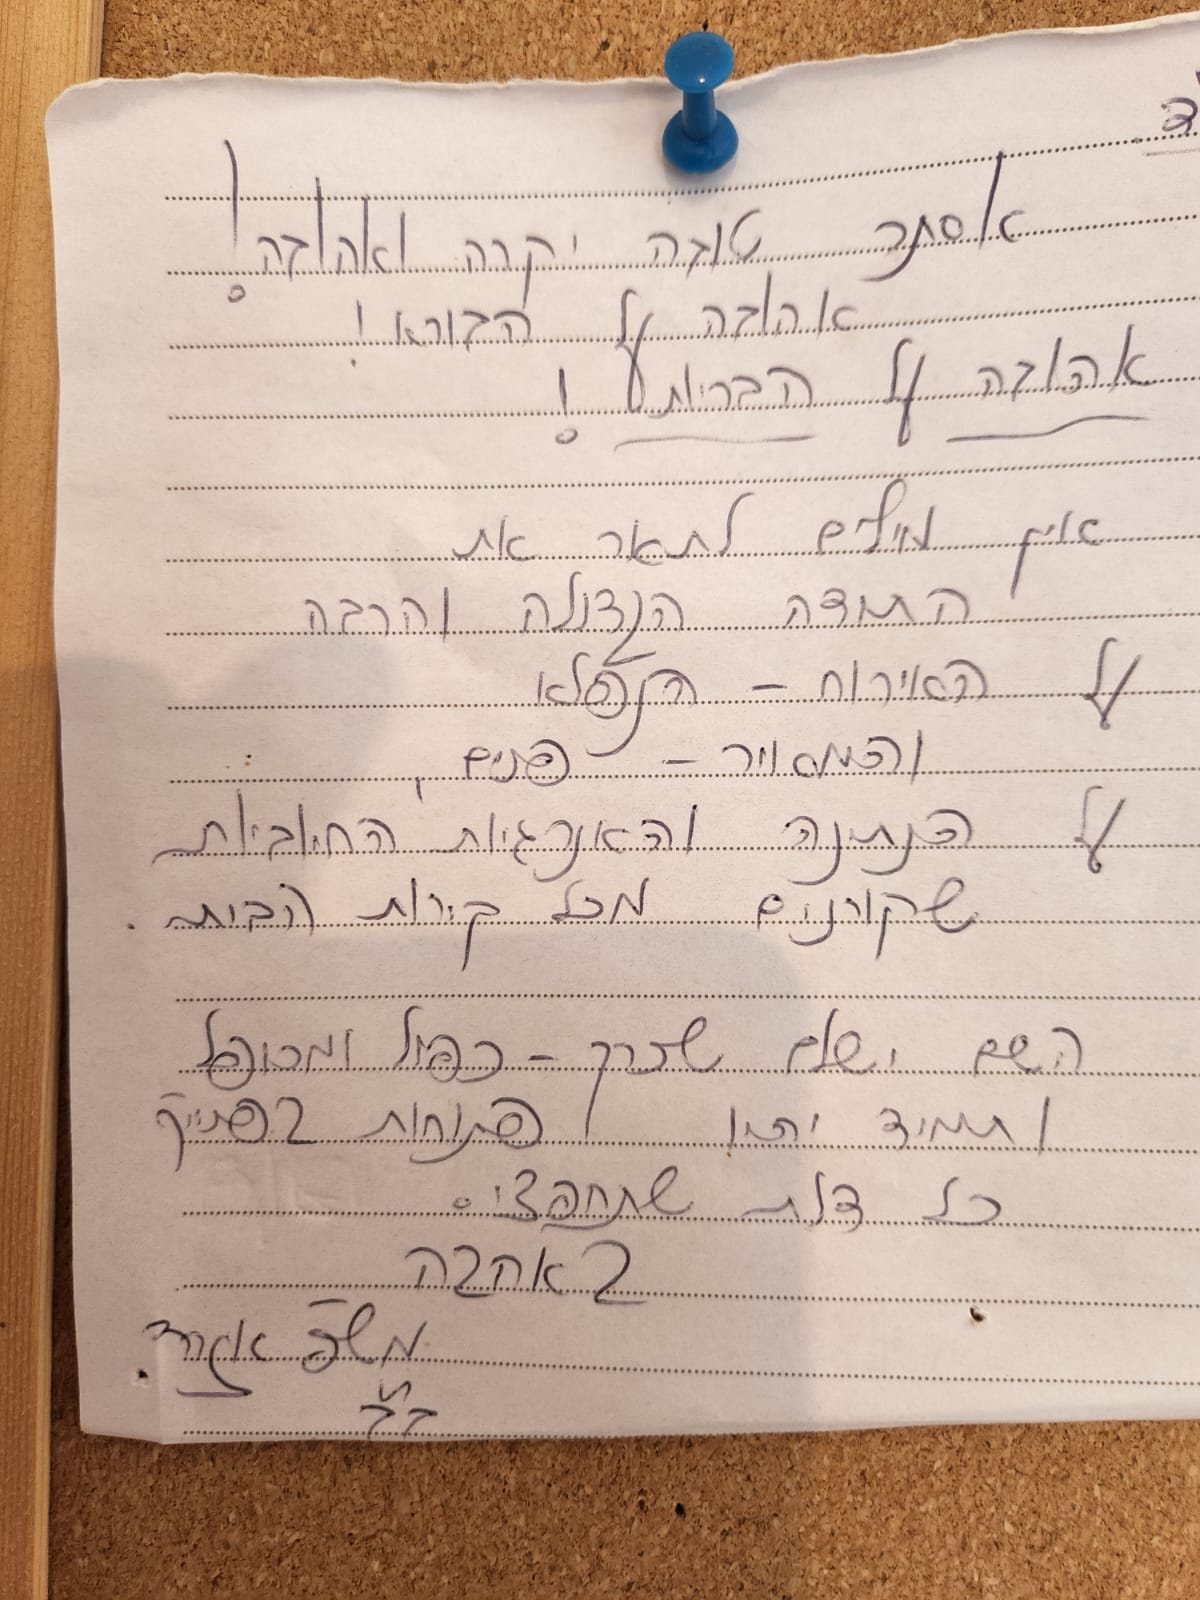 אסתר טובה יקרה ואהובה!
אהובה על הבורא!
אהובה על הבריות!
אין מילים לתאר את
התודה הגדולה והרבה
על האירוח - הנפלא
והמאיר - פנים,
על הנתינה והאנרגיות החיוביות
שקורנים מכל קירות הבית.
השם ישלם שכרך - כפול ומכופל
ותמיד יהיו פתוחות בפנייך
כל דלת שתחפצי.
באהבה
משפ'